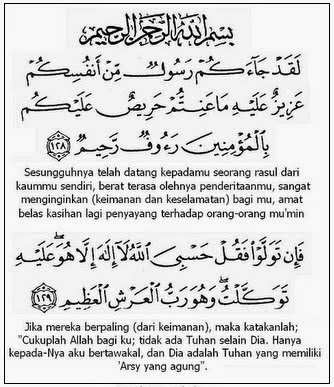 بِسْمِ اللَّهِ الرَّحْمَٰنِ الرَّحِيمِ
لَقَدْ جَاءَكُمْ رَسُولٌ مِّنْ أَنفُسِكُمْ
عَزِيزٌ عَلَيْهِ مَا عَنِتُّمْ حَرِيصٌ عَلَيْكُم
بِالْمُؤْمِنِينَ رَءُوفٌ رَّحِيمٌ ١٢٨
Sesungguhnya telah datang kepadamu seorang rasul dari
kaummu sendiri, berat terasa olehnya penderitaanmu, sangat
menginginkan (keimanan dan keselamatan) bagi mu, amat
belas kasihan lagi penyayang terhadap orang-orang mu'min
فَإِن تَوَلَّوْا فَقُلْ حَسْبِيَ اللَّهُ لَا إِلَٰهَ إِلَّا هُوَ ۖ عَلَيْهِ
تَوَكَّلْتُ ۖ وَهُوَ رَبُّ الْعَرْشِ الْعَظِيمِ ١٢٩
Jika mereka berpaling (dari keimanan), maka katakanlah;
"Cukuplah Allah bagi ku; tidak ada Tuhan selain Dia. Hanya
kepada-Nya aku bertawakal, dan Dia adalah Tuhan yang memiliki
'Arsy yang agung".